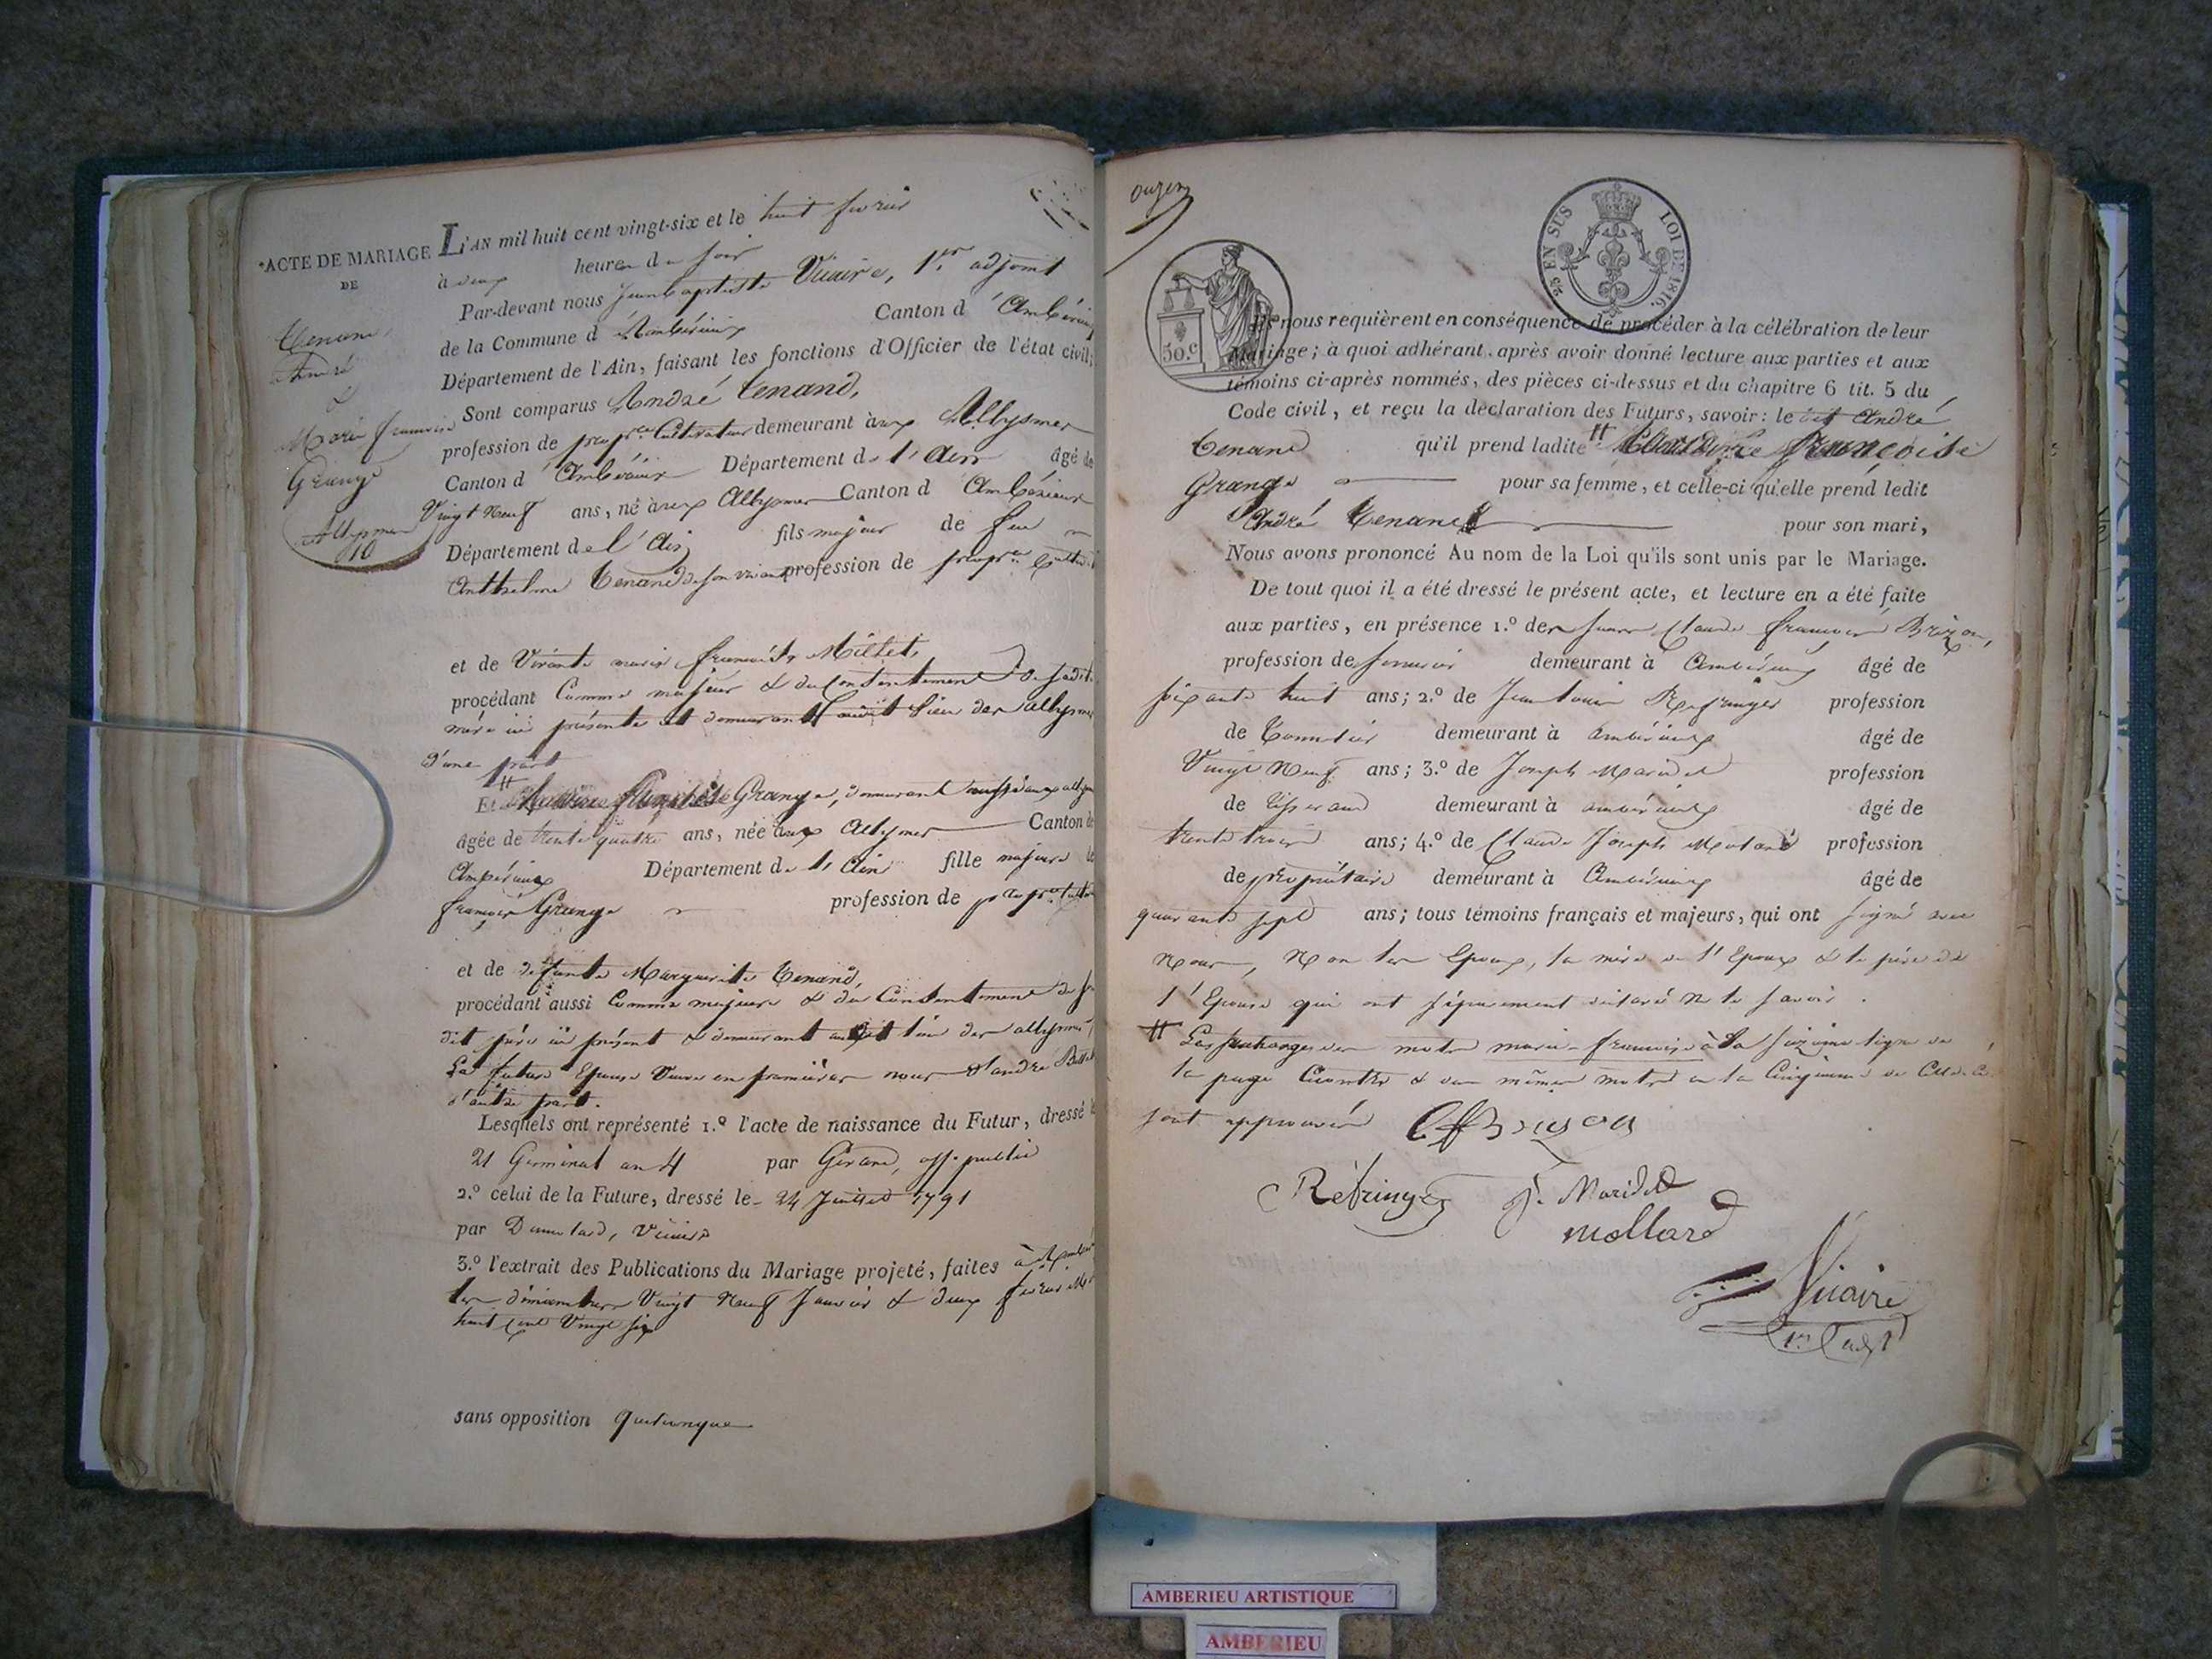 ACTE DE MARIAGE
DE
Tenand
André
&
Marie françoise
Grange
Allymes
10
L'AN mil huit cent vingt-six et le huit fevrier
à deux heures du soir
Par-devant nous Jean baptiste Vicaire, 1er adjoint
de la Commune d'Ambérieux Canton d'Ambérieux
Département de l'Ain, faisant les fonctions d'Officier de l'état civil;
Sont comparus André Tenand,
profession de propre Cultivateur demeurant aux Allymes
Canton d'Ambérieux Département de l'Ain âgé de
Vingt Neuf ans, né aux Allymes Canton d'Ambérieux
Département de l'Ain fils majeur de feu
Anthelme Tenand de son vivant profession de propre
et de Vivante marie françoise Millet,
procédant Comme majeur & du Consentement de sadite
mère ici présente et demeurant audit lieu des allymes
d'une part
Et Grange, demeurant aussi aux
âgée de trente quatre ans, née aux Allymes Canton
Ambérieux Département de l'Ain fille majeure
françois Grange profession de
et de défunte Marguerite Tenand,
procédant aussi Comme majeure & du Consentement de
dit père ici présent & demeurant audit lieu des allymes
La future Epouse Veuve en premières noces d'andré
d'autre part.
Lesquels ont représenté 1.º l'acte de naissance du Futur, dressé
21 Germinal an 4 par Girand, off. public
2.º celui de la Future, dressé le 24 Juillet 1791
par Vicaire
3.º l'extrait des Publications du Mariage projeté, faites à
les dimanches Vingt Neuf Janvier & deux fevrier
huit cent Vingt six
sans opposition quelconque
onzen
25 EN SUS LOI DE 1816.
50.c
Ils nous requièrent en conséquence de procéder à la célébration de leur
Mariage; à quoi adhérant, après avoir donné lecture aux parties et aux
témoins ci-après nommés, des pièces ci-dessus et du chapitre 6 tit. 5 du
Code civil, et reçu la déclaration des Futurs, savoir: le dit André
Tenand qu'il prend ladite # Marie françoise
Grange pour sa femme, et celle-ci qu'elle prend ledit
André Tenand pour son mari,
Nous avons prononcé Au nom de la Loi qu'ils sont unis par le Mariage.
De tout quoi il a été dressé le présent acte, et lecture en a été faite
aux parties, en présence 1.º des sieurs Claude françois Brizon,
profession de demeurant à Ambérieux âgé de
soixante huit ans; 2.º de Jean louis Refringer profession
de demeurant à ambérieux âgé de
Vingt Neuf ans; 3.º de Joseph Maridet profession
de tisserand demeurant à ambérieux âgé de
trente trois ans; 4.º de Claude Joseph Molard profession
de propriétaire demeurant à Ambérieux âgé de
quarante sept ans; tous témoins français et majeurs, qui ont signé avec
Nous, Non les Epoux, la mère de l'Epoux & le père de
l'Epouse qui ont séparement déclaré Ne le savoir.
# Les surcharges des mots marie françoise à la ligne de
la page Contre & des mêmes mots a la Cinquieme de Celle Ci
sont approuvés Brizon
Réfringer J. Maridet
mollard
Vicaire
1er adjt
AMBERIEU ARTISTIQUE
AMBERIEU